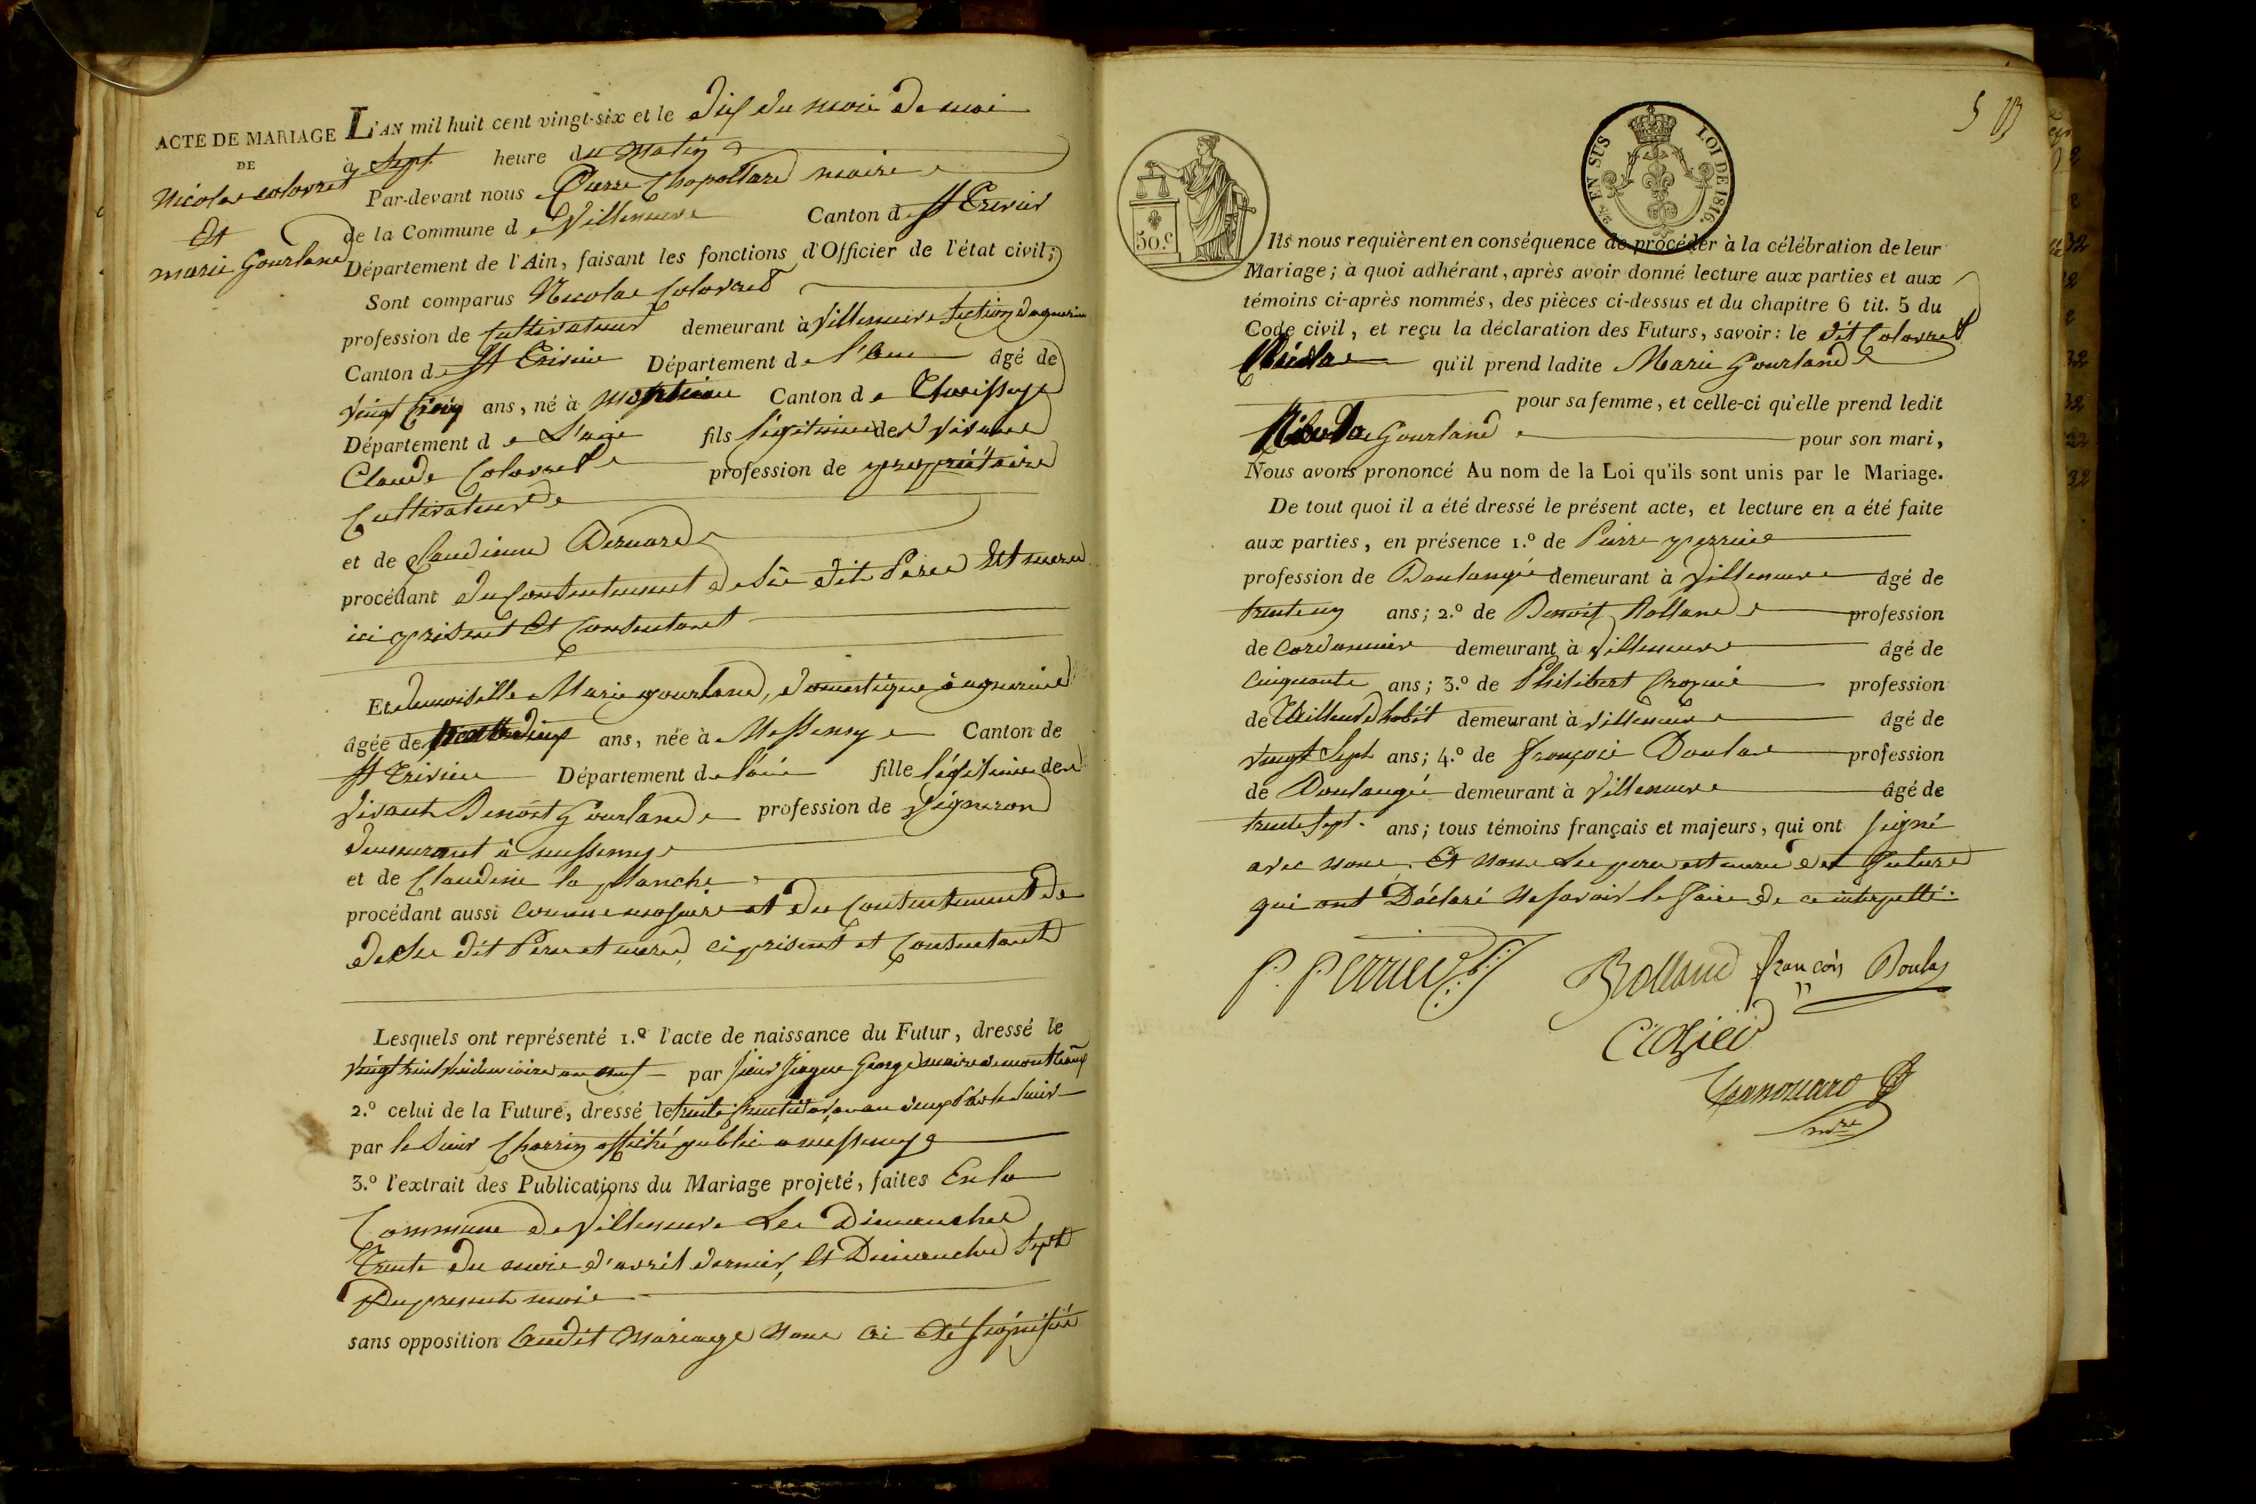 ACTE DE MARIAGE
DE
Nicolas colovret
Et
marie Gourland
L'AN mil huit cent vingt-six et le dix du mois de mai
à Sept heure du matin
Par-devant nous Pierre Chapottard maire
de la Commune de Villeneuve Canton de St Trivier
Département de l'Ain, faisant les fonctions d'Officier de l'état civil;
Sont comparus Nicolas Colovret
profession de Cultivateur demeurant à Villeneuve section d'agnerein
Canton de St Trivier Département de l'ain âgé de
vingt cinq ans, né à Canton de Thoissey
Département de L'ain fils légitime de vivans
Claude Colovret profession de propriétaire
Cultivateur
et de Claudine Bernard
procédant du Consentement de ses dit Père Et mere
ici présent Et Consentant
Et demoiselle Marie gourland, domestique à agnerein
âgée de ans, née à Messimy Canton de
St Trivier Département de l'ain fille légitime de
vivant Benoit Gourland profession de vigneron
demeurant à messimy
et de Claudine la planche
procédant aussi comme majeure et du Consentement de
de ses dit Pere et mere, ci présent et Consentant
Lesquels ont représenté 1.º l'acte de naissance du Futur, dressé le
vingt trois vendemiaire an neuf par sieur George maire de
2.º celui de la Future, dressé le trente fructidor an
par le sieur Charrin officié public a messimy
3.º l'extrait des Publications du Mariage projeté, faites En la
Commune de Villeneuve Les Dimanches
Trente du mois d'avril dernier, Et Dimanche sept
Du present mois
sans opposition Audit Mariage nous ai été signifié
50.C
2/5 EN SUS LOI DE 1816.
5
Ils nous requièrent en conséquence de procéder à la célébration de leur
Mariage; à quoi adhérant, après avoir donné lecture aux parties et aux
témoins ci-après nommés, des pièces ci-dessus et du chapitre 6 tit. 5 du
Code civil, et reçu la déclaration des Futurs, savoir: le dit Colovret
Nicolas qu'il prend ladite Marie Gourland
pour sa femme, et celle-ci qu'elle prend ledit
Gourland pour son mari,
Nous avons prononcé Au nom de la Loi qu'ils sont unis par le Mariage.
De tout quoi il a été dressé le présent acte, et lecture en a été faite
aux parties, en présence 1.º de Pierre perrier
profession de Boulangé demeurant à Villeneuve âgé de
trente un ans; 2.º de Benoit Rolland profession
de Cordonnier demeurant à Villeneuve âgé de
Cinquante ans; 3.º de Philibert Crozier profession
de Tailleur d'habit demeurant à Villeneuve âgé de
vingt Sept ans; 4.º de françois Doulas profession
de Boulangé demeurant à Villeneuve âgé de
trente sept ans; tous témoins français et majeurs, qui ont signé
avec nous. Et non Les pere et mere et Future
qui ont Déclaré ne savoir le faire de ce interpellé.
P. Perrier
B Rolland
françois Doulas
Crozier